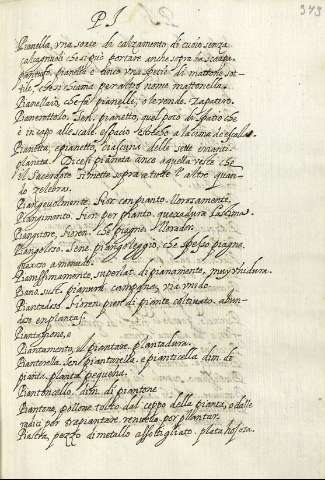 PI
373
Pianella, una sorte di calzamento di cuoio senza
calcagnuolo che si può portare anche sopra la scarpa,
pantufo. pianella è anco una specie di mattone sot-
tile, che si chiama per altro nome mattonella.
Pianellaio, che fa pianelle, o le vende. Zapatero.
Pianerottolo. Sen. pianetto, quel poco di spatio che
è in capo alle scale. espacio
Pianeta, e pianetto, ciascuna delle sette erranti.
planeta. Dicesi pianeta anco aquella veste che
il Sacerdote si mette sopra a tutte l'altre quan-
do zelebra.
Piangevolmente. Fior. con pianto. llorosamente.
Piangimento. Fior. per pianto. quexadura lastima.
Piangitore, Fioren. che piagne. llorador.
Piangoloso. Sene. piangoleggio, che spesso piagne.
lloroso a menudo.
Pianissimamente, superlat. di pianamente, muy
Piano, sust. pianura. campaña,
Piantadoso Fioren. pien di piante coltivato. abun-
doso en plantas.
Piantagione, e
Piantamento, il piantare. plantadura.
Pianterella. Sen. pianturella e pianticella dim. di
pianta. planta pequeña.
Piantoncello. dim. di piantone.
Piantone, pollone tolto dal ceppo della pianta, o dalle
radici per trapiantare. renuelo por plantar.
Piastra, pezzo di metallo assottigliato. plata